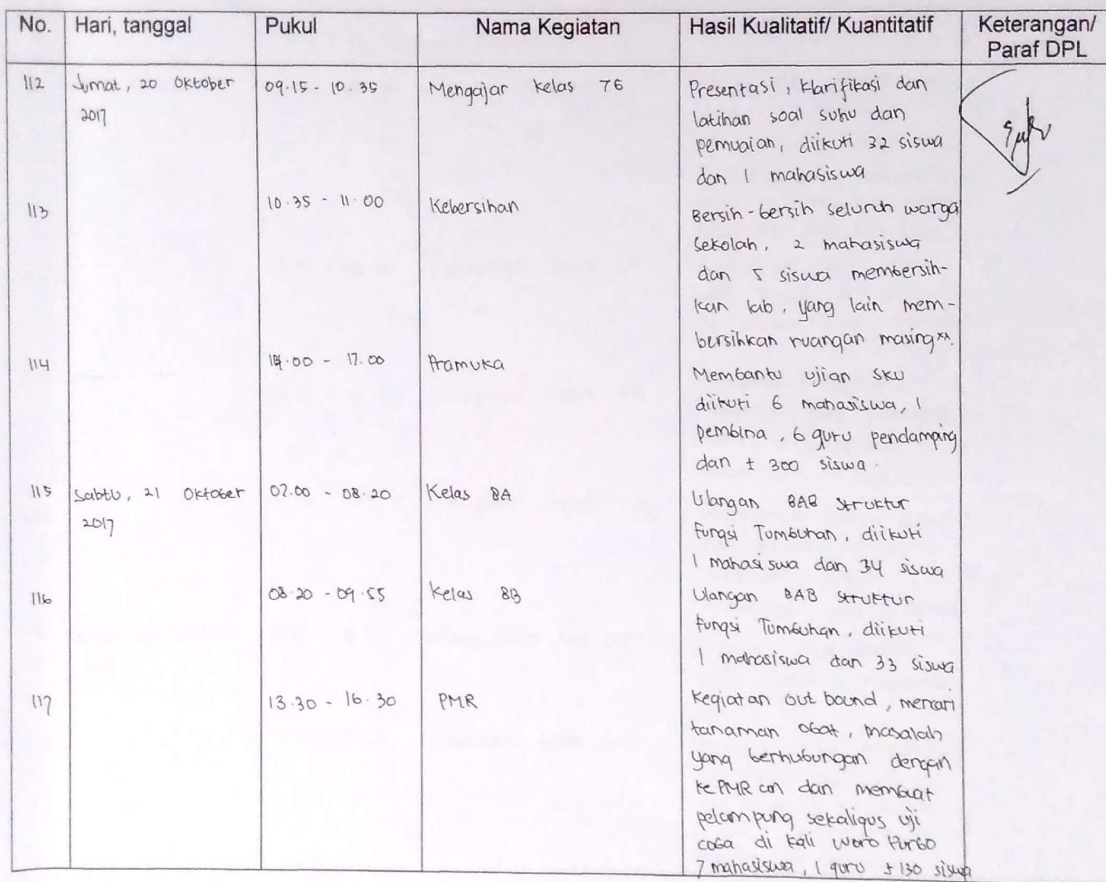 No. Hari, tanggal Pukul Nama Kegiatan Hasil Kualitatif/ Kuantitatif Keterangan/
Paraf DPL
112 Jumat, 20 Oktober 09.15 - 10.35 Mengajar kelas 7G Presentasi, klarifikasi dan
2017 latihan soal suhu dan
pemuaian, diikuti 32 siswa
dan 1 mahasiswa
113 10.35 - 11.00 Kebersihan Bersih-bersih seluruh warga
sekolah, 2 mahasiswa
dan 5 siswa membersih-
kan lab, yang lain mem-
bersihkan ruangan masing xx.
114 14.00 - 17.00 Pramuka Membantu ujian SKU
diikuti 6 mahasiswa, 1
pembina, 6 guru pendamping
dan ± 300 siswa.
115 Sabtu, 21 Oktober 07.00 - 08.20 Kelas 8A Ulangan BAB struktur
2017 Fungsi Tumbuhan, diikuti
1 mahasiswa dan 34 siswa
116 08.20 - 09.55 Kelas 8B Ulangan BAB struktur
fungsi Tumbuhan, diikuti
1 mahasiswa dan 33 siswa
117 13.30 - 16.30 PMR Kegiatan out bound, mencari
tanaman obat, masalah
yang berhubungan dengan
ke PMR an dan membuat
pelampung sekaligus uji
coba di kali woro Purbo
7 mahasiswa, 1 guru ± 130 siswa